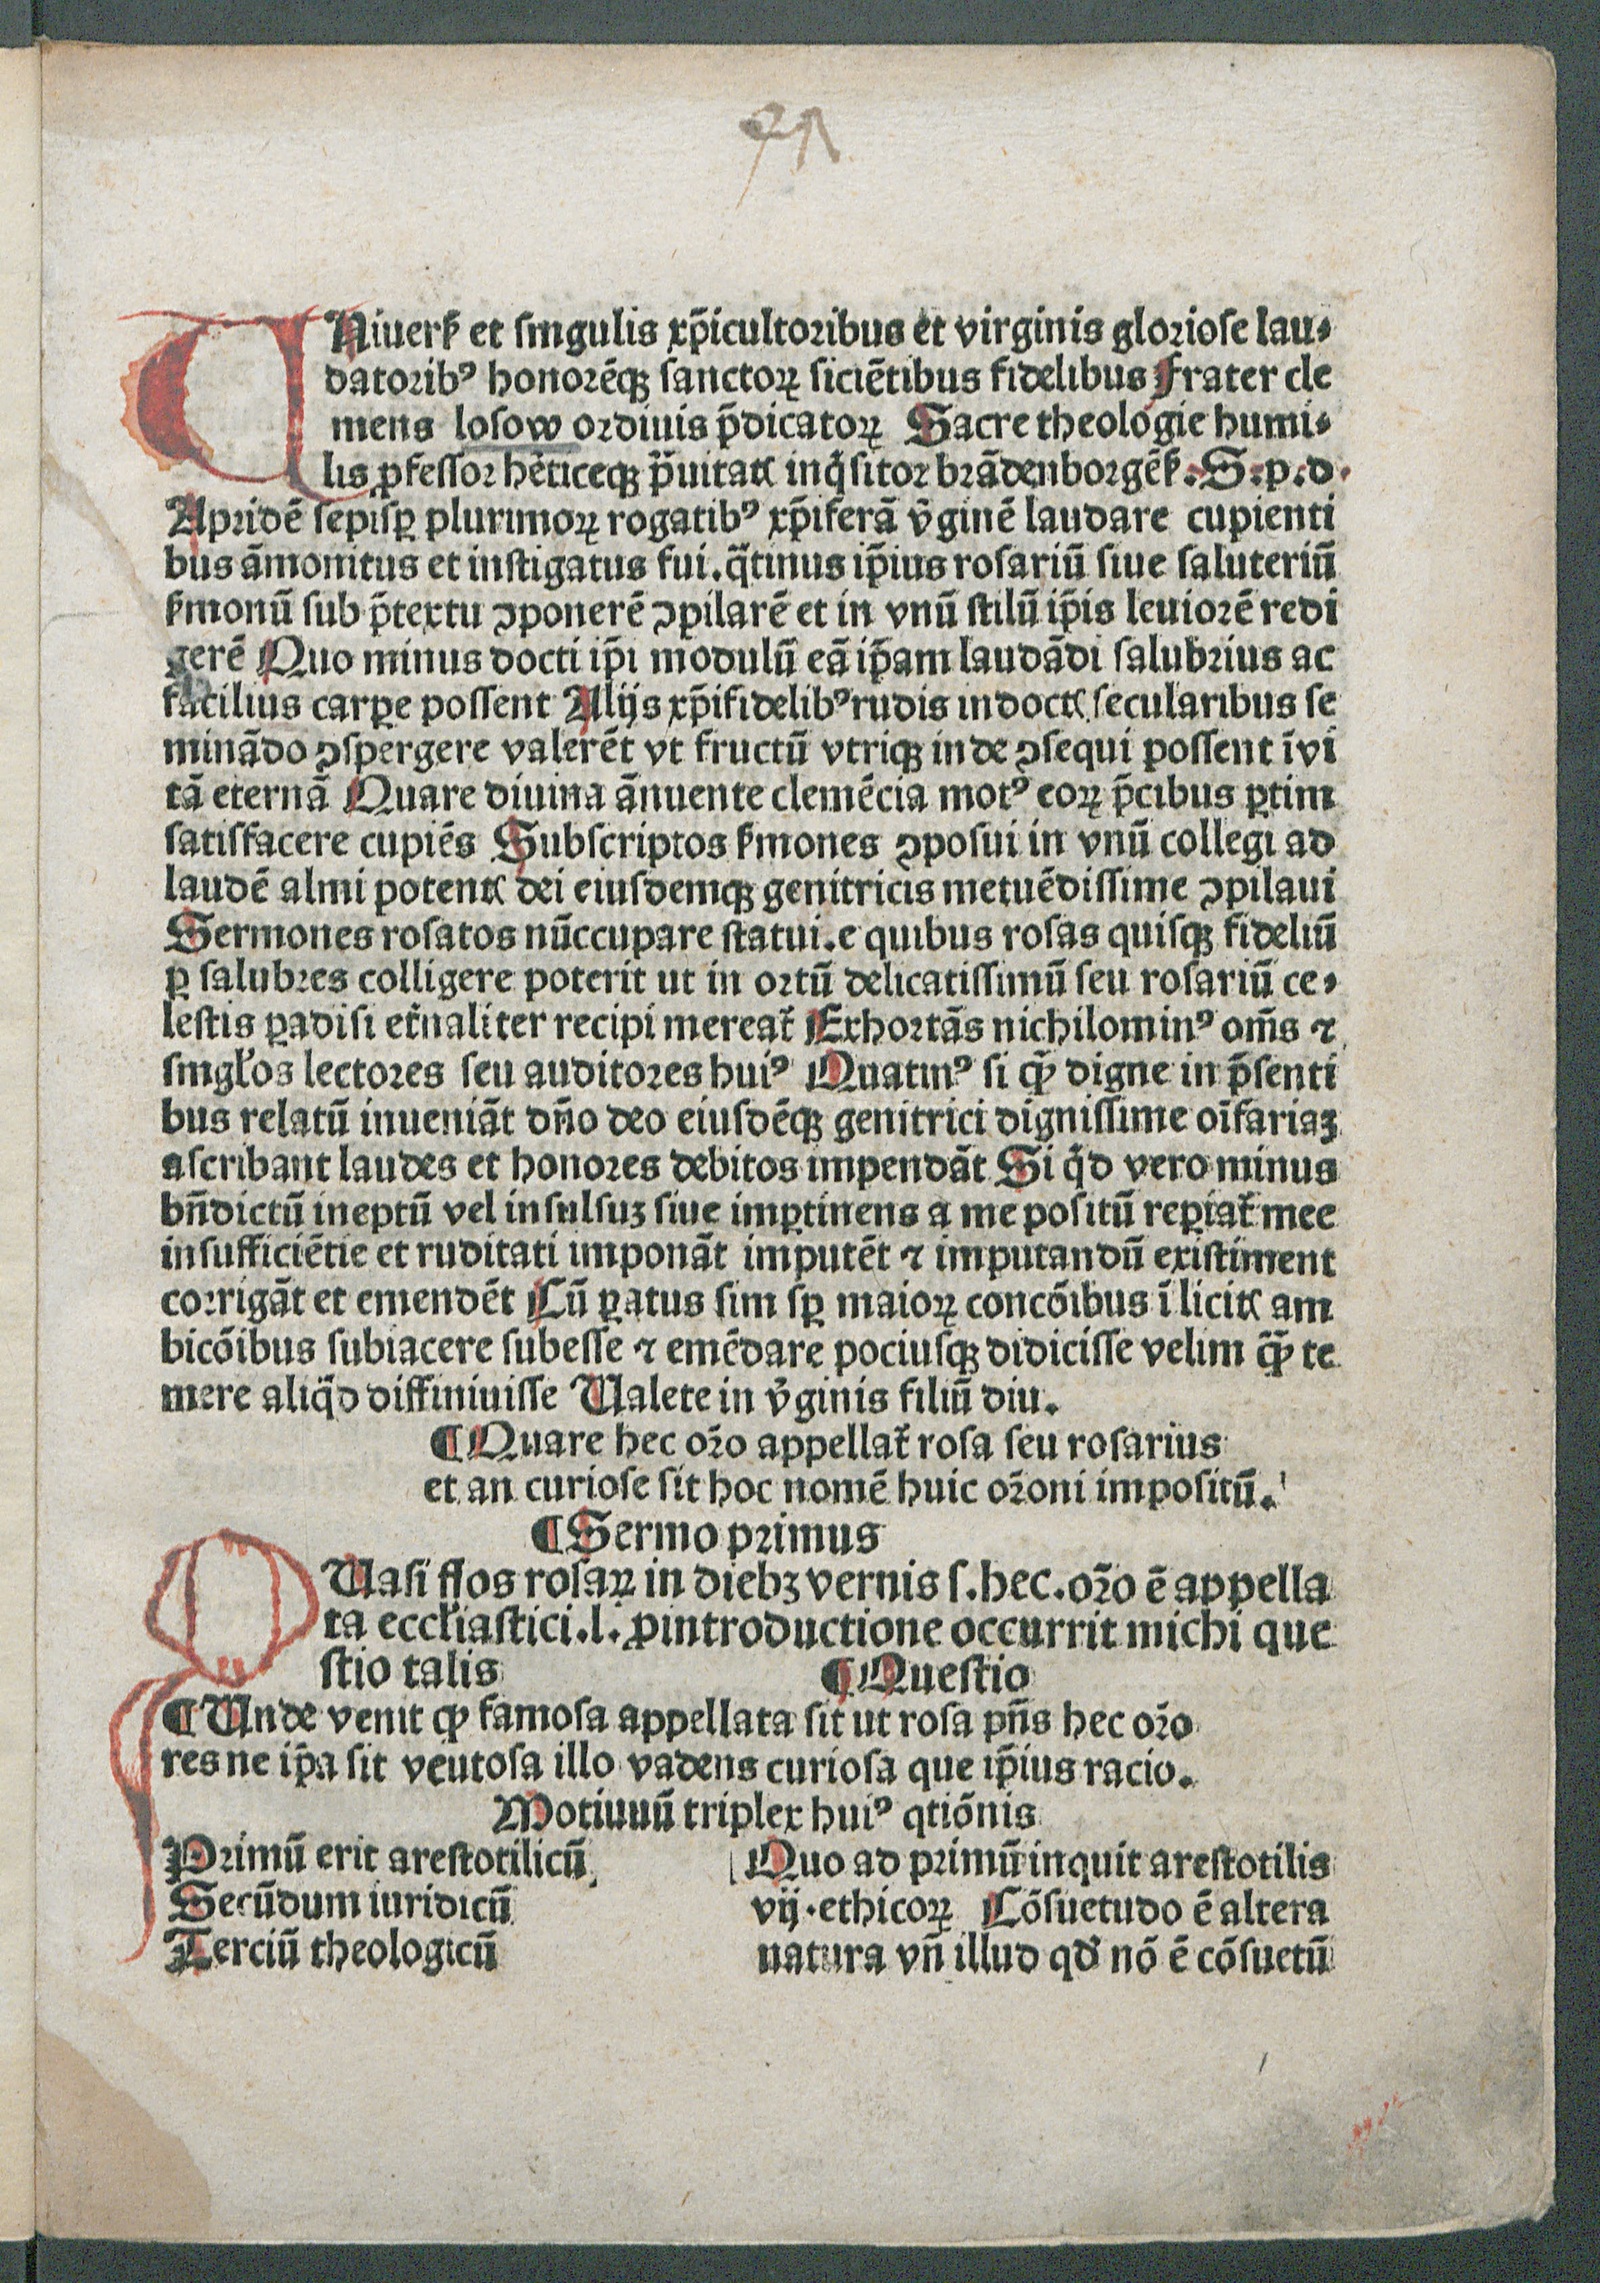 UNiuerẜ et singulis xp̄icultoribus et virginis gloriose lau⸗
datoribꝰ honorēqꝫ sanctoꝝ siciētibus fidelibus Frater cle
mens losow ordinis p̄dicatoꝝ Sacre theologie humi⸗
lis ꝓfessor hēticeqꝫ p̄uitatꝭ inq̇sitor brādenborgēẜ. S. p. d.
Apridē sepisꝑ plurimoꝝ rogatibꝰ xp̄iferā v̄ginē laudare cupienti
bus āmonitus et instigatus fui. q̄tinus ip̄ius rosariū siue saluteriū
ẜmonū sub p̄textu ꝯponerē ꝯpilarē et in vnū stilū ip̄is leuiorē redi
gerē Quo minus docti ip̄i modulū eā ip̄am laudādi salubrius ac
facilius carꝑe possent Alijs xp̄ifidelibꝰ rudis indoctꝭ secularibus se
minādo ꝯspergere valerēt vt fructū vtriqꝫ inde ꝯsequi possent ī vi
tā eternā Quare diuina ānuente clemēcia motꝰ eoꝝ p̄cibus ꝑtim
satisfacere cupiēs Subscriptos ẜmones ꝯposui in vnū collegi ad
laudē almi potentꝭ dei eiusdemqꝫ genitricis metuēdissime ꝯpilaui
Sermones rosatos nūccupare statui. e quibus rosas quisqꝫ fideliū
ꝑ salubres colligere poterit ut in ortū delicatissimū seu rosariū ce⸗
lestis ꝑadisi et̄naliter recipi mereat̄ Exhortās nichilominꝰ om̄s ⁊
singl̄os lectores seu auditores huiꝰ Quatinꝰ si qͣꝫ digne in p̄senti
bus relatū inueniāt dn̄o deo eiusdēqꝫ genitrici dignissime oīfariaꝫ
ascribant laudes et honores debitos impendāt Si q̇d vero minus
bn̄dictū ineptū vel insulsuꝫ siue imꝑtinens a me positū reꝑiat̄ mee
insufficiētie et ruditati imponāt imputēt ⁊ imputandū existiment
corrigāt et emendēt Cū ꝑatus sim sꝑ maioꝝ concōibus ī licitꝭ am
bicōibus subiacere subesse ⁊ emēdare pociusqꝫ didicisse velim qͣꝫ te
mere aliq̇d diffiniuisse Ualete in v̄ginis filiū diu.
¶ Quare hec or̄o appellat̄ rosa seu rosarius
et an curiose sit hoc nomē huic or̄oni impositū.
¶ Sermo primus
QUasi flos rosaꝝ in diebꝫ vernis s. hec. or̄o ē appella
ta eccl̄iastici. l. ꝓ introductione occurrit michi que
stio talis ¶ Questio
¶ Unde venit ꝙ famosa appellata sit ut rosa pn̄s hec or̄o
res ne ip̄a sit ventosa illo vadens curiosa que ip̄ius racio.
Motiuuū triplex huiꝰ qtiōnis
Primū erit arestotilicū
Secūdum iuridicū
Terciū theologicū
Quo ad primū inquit arestotilis
vij. ethicoꝝ Cōsuetudo ē altera
natura vn̄ illud qd̄ nō ē cōsuetū